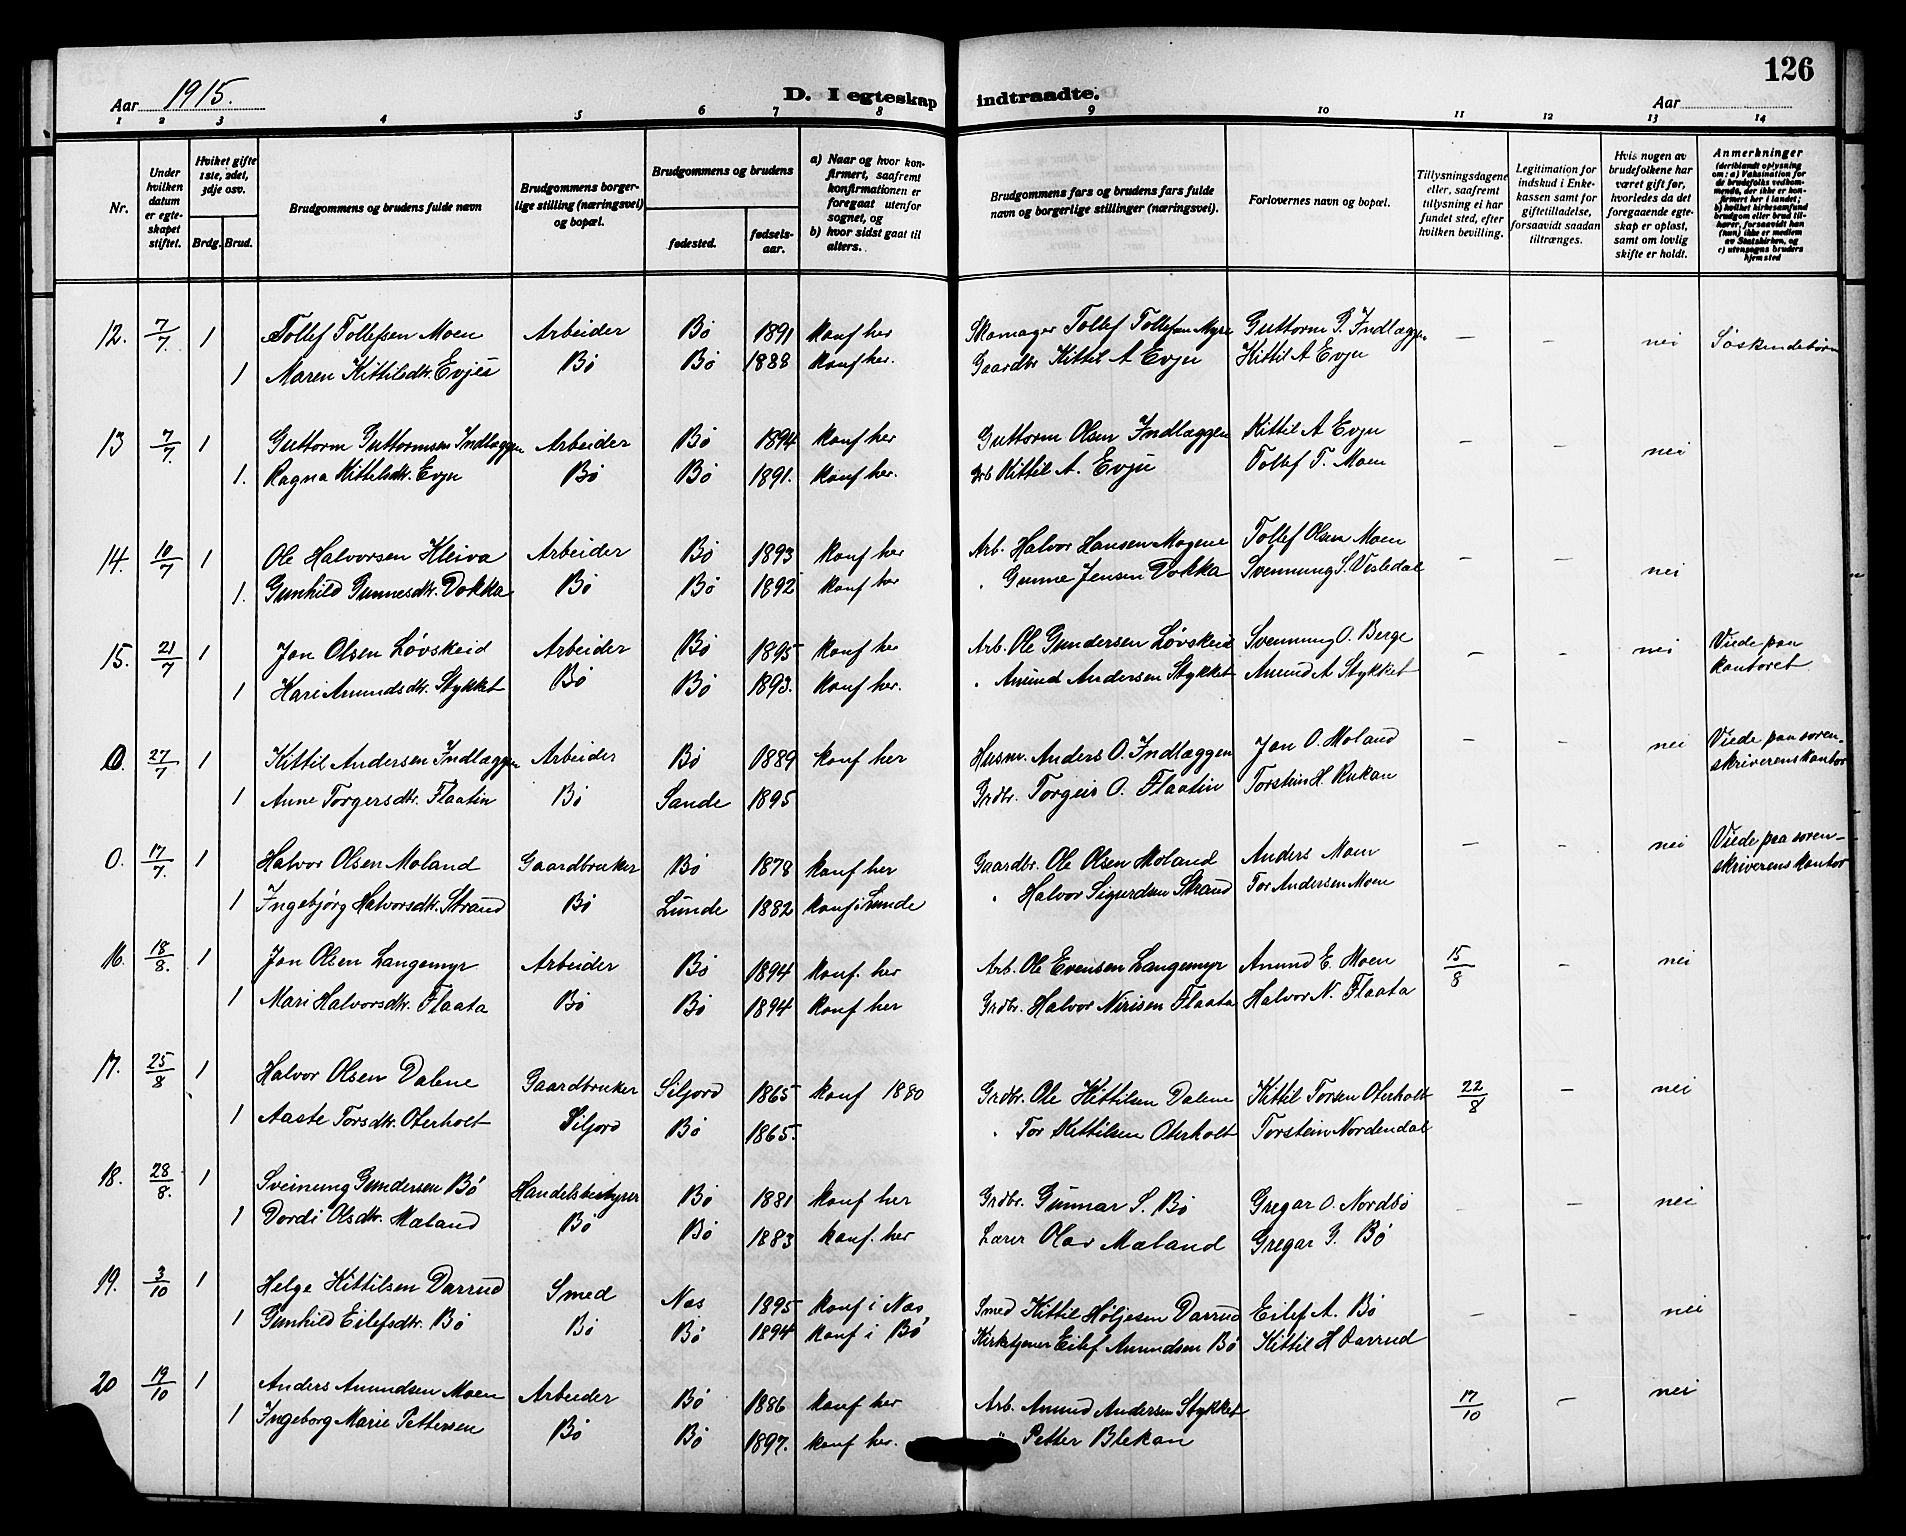 126
Aar 1915.
D. I egteskap indtraadte.
Aar
1 2 3 4 5 6 7 8 9 10 11 12 13 14
Nr.
Under hvilken datum er egteskapet stiftet.
Hvilket gifte 1ste, 2det, 3dje osv.
Brdg. Brud.
Brudgommens og brudens fulde navn
Brudgommens borgerlige stilling (næringsvei) og bopæl.
Brudgommens og brudens
fødested.
fødselsaar.
a) Naar og hvor konfirmert, saafremt konfirmationen er foregaat utenfor sognet, og
b) hvor sidst gaat til alters.
Brudgommens fars og brudens fars fulde navn og borgerlige stillinger (næringsvei).
Forlovernes navn og bopæl.
Tillysningsdagene eller, saafremt tillysning ei har fundet sted, efter hvilken bevilling.
Legitimation for indskud i Enkekassen samt for giftetilladelse, forsaavidt saadan tiltrænges.
Hvis nogen av brudefolkene har været gift før, hvorledes da det foregaaende egteskap er opløst, samt om lovlig skifte er holdt.
Anmerkninger (deriblandt oplysning om: a) Vaksination for de brudefolks vedkommende, der ikke er konfirmert her i landet; b) hvilket kirkesamfund brudgom eller brud tilhører, forsaavidt han (hun) ikke er medlem av Statskirken, og c) utensogns bruders hjemsted
12. 7/7. 1 Tollef Tollefsen Moen Arbeider Bø 1891 konf her Skomager Tollef Tollefsen Myre Guttorm G. Indlæggen — — nei Søskendebørn
1 Maren Kittilsdtr. Evjes Bø Bø 1888 konf her. Gaardbr Kittil A Evju Kittil A Evju
13 7/7. 1 Guttorm Guttormsen Indlæggen Arbeider Bø 1894 konf her Guttorm Olsen Indlæggen Kittil A Evju — — nei
1. Ragna Kittelsdtr. Evju Bø Bø 1891. konf her. Grb Kittil A. Evju Tollef T. Moen
14. 10/7 1 Ole Halvorsen Kleiva Arbeider Bø 1893 konf her Arb. Halvor Hansen Mogene Tollef Olsen Moen — — nei
1. Gunhild Gunnesdtr. Dokka Bø Bø 1892 konf her " Gunne Jensen Dokka Svennung S. Vesledal
15. 21/7 1 Jon Olsen Løvskeid Arbeider Bø 1895 konf her Arb. Ole Gundersen Løvskeid Svennung O. Berge — — nei Viede paa kontoret
1 Kari Amundsdtr. Stykket Bø Bø 1893. konf her. " Amund Andersen Stykket Amund A Stykket
0. 27/7 1 Kittil Andersen Indlæggen Arbeider Bø 1889 konf her Husm. Anders O. Indlæggen Jon O. Moland — — nei Viede paa sorenskriverens kontor
1 Anne Torgersdtr. Flaatin Bø Sande 1895 Grdbr. Torgeir O. Flaatin Torstein H. Rukan
0. 17/7. 1 Halvor Olsen Moland Gaardbruker Bø 1878 konf her Gaardbr. Ole Olsen Moland Anders Moen — — nei Viede paa sorenskriverens kontor
1 Ingebjørg Halvorsdtr. Strand Bø Lunde 1882 konf i Lunde " Halvor Sigurdsen Strand Tor Andersen Moen
16. 18/8. 1 Jon Olsen Langemyr Arbeider Bø 1894 konf. her Arb. Ole Evensen Langemyr Amund E. Moen 15/8 — nei
1 Mari Halvorsdtr. Flaata Bø Bø 1894 konf her Grdbr. Halvor Nirisen Flaata Halvor N. Flaata
17. 25/8 1 Halvor Olsen Dalene Gaardbruker Siljord 1865 konf 1880 Grdbr. Ole Kittilsen Dalene Kittil Torsen Oterholt 22/8 — nei
1 Aaste Torsdtr. Oterholt Siljord Bø 1865. " Tor Kittilsen Oterholt Torstein Nordendal
18. 28/8. 1 Sveinung Gundersen Bø Handelsbestyrer Bø 1881 konf her Grdbr. Gunnar S. Bø Gregar O. Nordbø — — nei
1 Dordi Olsdtr. Mæland Bø Bø 1883 konf. her Lærer Olav Mæland Gregar G. Bø
19. 3/10 1 Helge Kittilsen Darrud Smed Nes 1895 konf i Nes Smed Kittil Høljesen Darrud Eilef A. Bø — — nei
1 Gunhild Eilefsdtr. Bø Bø Bø 1894 konf i Bø Kirketjener Eilef Amundsen Bø Kittil H Darrud
20 19/10 1 Anders Amundsen Moen Arbeider Bø 1886 konf her Arb. Amund Andersen Stykket 17/10 — nei
1 Ingeborg Marie Pettersen Bø Bø 1897. konf her. " Petter Blekan